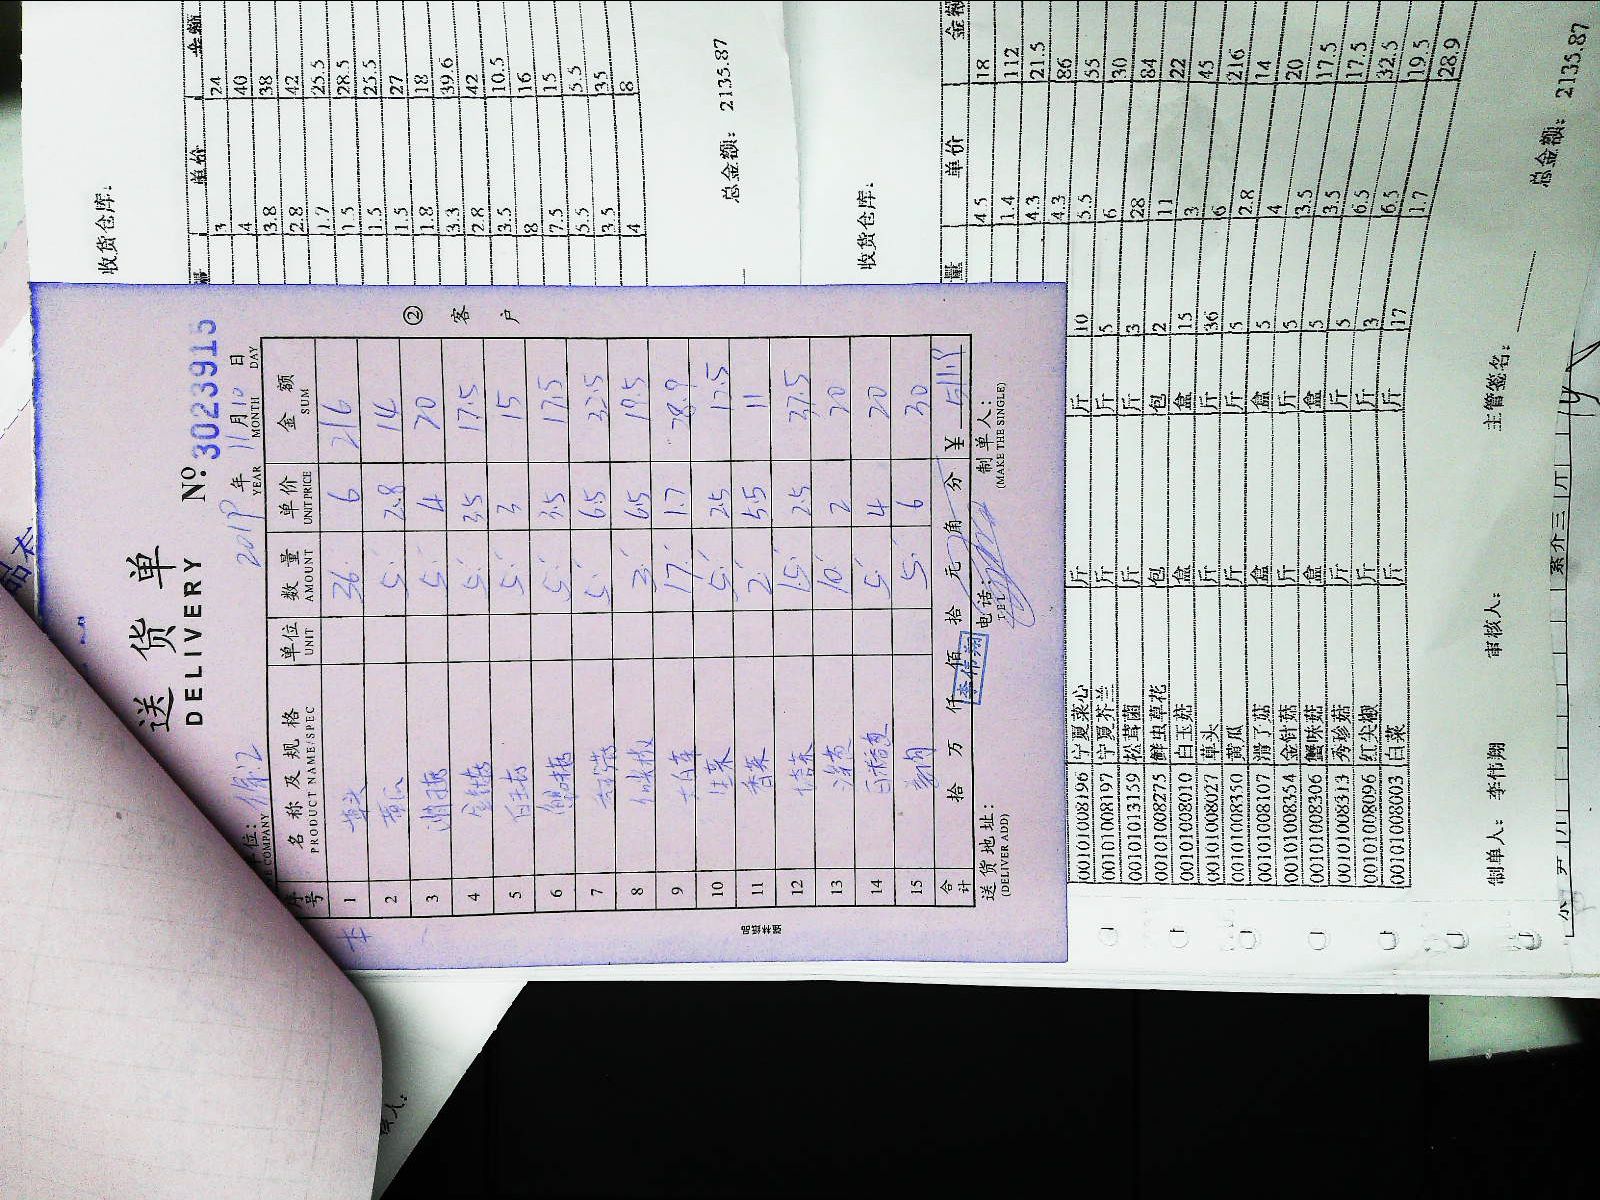 送货单
DELIVERY
№ 3023915
2019年 11月10日
YEAR MONTH DAY
名称及规格 单位 数量 单价 金额
PRODUCT NAME/SPEC UNIT AMOUNT UNIT PRICE SUM
1 草头 36 6 216
2 黄瓜 5 2.8 14
3 5 4 20
4 5 3.5 17.5
5 5 3 15
6 5 3.5 17.5
7 5 6.5 32.5
8 3 6.5 19.5
9 17 1.7 28.9
10 生菜 5 2.5 12.5
11 香菜 2 5.5 11
12 15 2.5 37.5
13 10 2 20
14 5 4 20
15 5 6 30
合计 拾 万 仟 佰 拾 元 角 分 ¥
李伟翔
送货地址:
(DELIVER ADD)
电话:
TEL
制单人:
(MAKE THE SINGLE)
② 客户
收货仓库:
单价 金额
3 24
4 40
3.8 38
2.8 42
1.7 25.5
1.5 28.5
1.5 25.5
1.5 27
1.8 18
3.3 39.6
2.8 42
3.5 10.5
8 16
7.5 15
5.5 5.5
3.5 35
4 8
总金额: 2135.87
收货仓库:
量 单价 金额
4.5 18
1.4 112
4.3 21.5
4.3 86
00101008196 宁夏菜心 斤 斤 10 5.5 55
00101008197 宁夏芥兰 斤 斤 5 6 30
00101013159 松茸菌 斤 斤 3 28 84
00101008275 鲜虫草花 包 包 2 11 22
00101008010 白玉菇 盒 盒 15 3 45
00101008027 草头 斤 斤 36 6 216
00101008350 黄瓜 斤 斤 5 2.8 14
00101008107 滑子菇 盒 盒 5 4 20
00101008354 金针菇 斤 斤 5 3.5 17.5
00101008306 蟹味菇 盒 盒 5 3.5 17.5
00101008313 秀珍菇 斤 斤 5 6.5 32.5
00101008096 红尖椒 斤 斤 3 6.5 19.5
00101008003 白菜 斤 斤 17 1.7 28.9
总金额: 2135.87
制单人: 李伟翔 审核人: 主管签名: